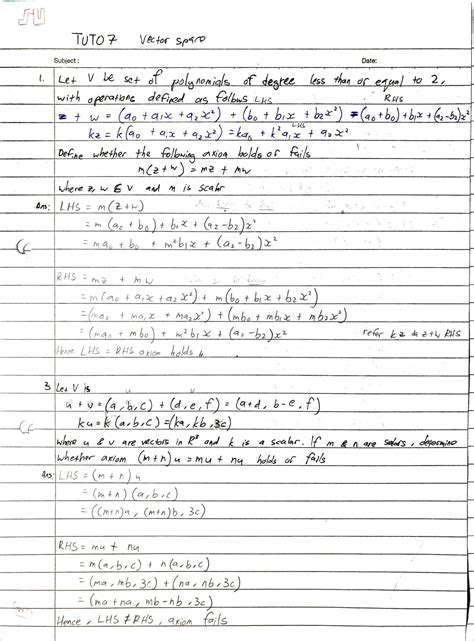 TUTO 7 Vector space
Subject : Date:
1. Let V be set of polynomials of degree less than or equal to 2,
with operations defined as follows LHS RHS
z + w = (a₀ + a₁x + a₂x²) + (b₀ + b₁x + b₂x²) = (a₀+b₀)+b₁x+(a₂-b₂)x²
kz = k(a₀ + a₁x + a₂x²) = ka₀ + k²a₁x + a₂x²
LHS
Define whether the following axiom holds or fails
m(z+w) = mz + mw
where z, w ∈ V and m is scalar
Ans: LHS = m(z+w)
= m(a₀+b₀) + b₁x + (a₂-b₂)x²
= ma₀ + b₀ + m²b₁x + (a₂-b₂)x²
RHS = mz + mw
= m(a₀ + a₁x + a₂x²) + m(b₀ + b₁x + b₂x²)
= (ma₀ + ma₁x + ma₂x²) + (mb₀ + mb₁x + mb₂x²)
= (ma₀ + mb₀) + m²b₁x + (a₂-b₂)x² refer kz & z+w RHS
Hence LHS = RHS axiom holds
3. Let V is
u v
u + v = (a,b,c) + (d,e,f) = (a+d, b-e, f)
ku = k(a,b,c) = (ka, kb, 3c)
where u & v are vectors in R³ and k is a scalar. If m & n are scalars, determine
whether axiom (m+n)u = mu + nu holds or fails
Ans: LHS = (m+n)u
= (m+n)(a,b,c)
= ((m+n)a, (m+n)b, 3c)
RHS = mu + nu
= m(a,b,c) + n(a,b,c)
= (ma, mb, 3c) + (na, nb, 3c)
= (ma+na, mb-nb, 3c)
Hence, LHS ≠ RHS, axiom fails